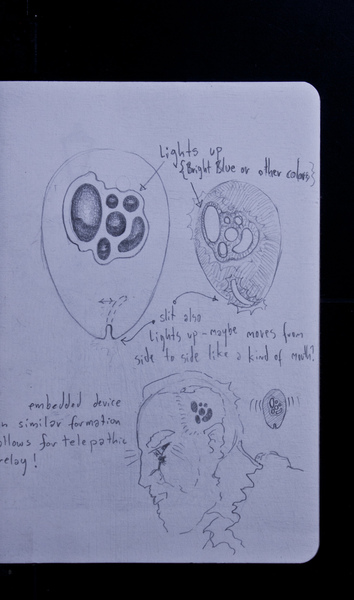 Lights up
{Bright Blue or other colors}
slit also
Lights up - maybe moves from
side to side like a kind of mouth?
embedded device
similar formation
allows for telepathic
relay!